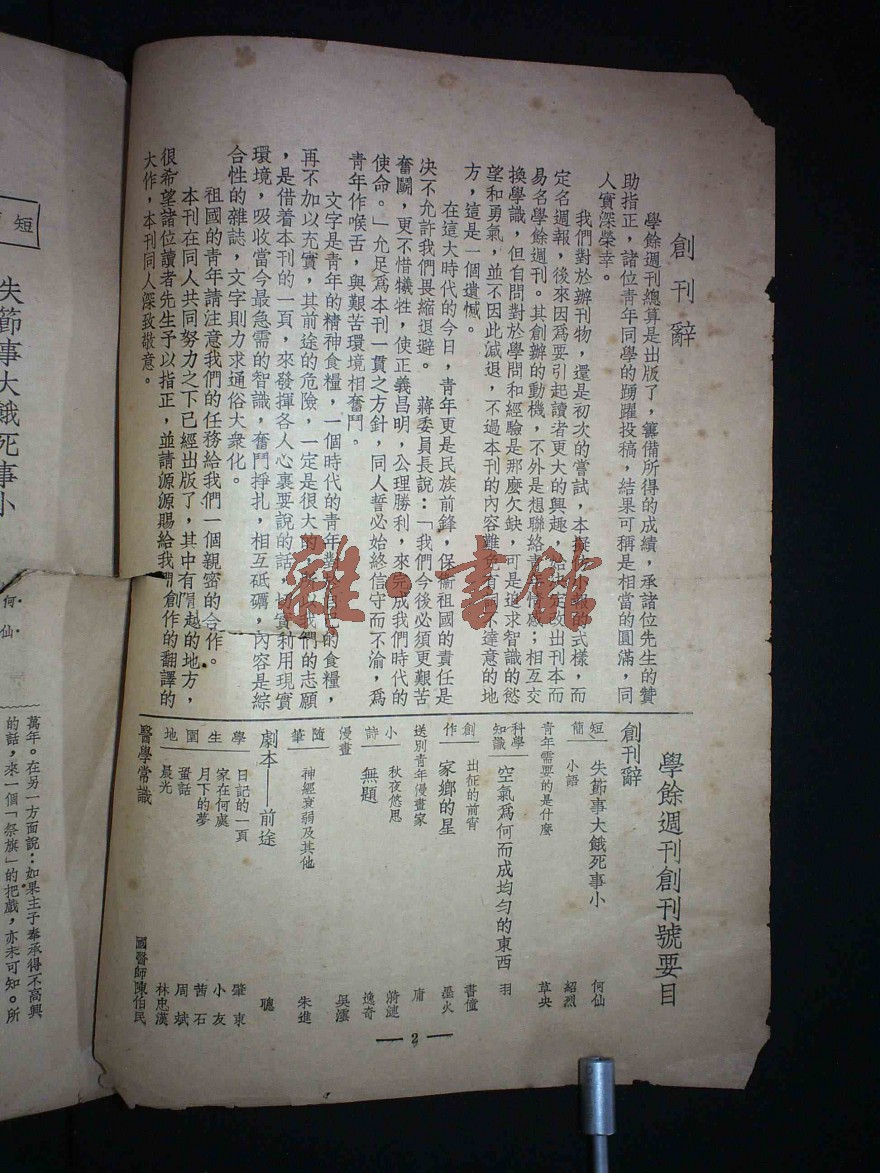 創刊辭
學餘週刊總算是出版了，籌備所得的成績，承諸位先生的贊
助指正，諸位青年同學的踴躍投稿，結果可稱是相當的圓滿，同
人實深榮幸。
我們對於辦刊物，還是初次的嘗試，本擬仿小報的式樣，而
定名週報，後來因爲要引起讀者更大的興趣，始决定改出刊本而
易名學餘週刊。其創辦的動機，不外是想聯絡青年情感；相互交
換學識，但自問對於學問和經驗是那麼欠缺，可是追求智識的慾
望和勇氣，並不因此減退，不過本刊的內容難免有詞不達意的地
方，這是一個遺憾。
在這大時代的今日，青年更是民族前鋒，保衞祖國的責任是
决不允許我們畏縮退避。　蔣委員長說：「我們今後必須更艱苦
奮鬭，更不惜犧牲，使正義昌明，公理勝利，來完成我們時代的
使命。」允足爲本刊一貫之方針，同人誓必始終信守而不渝，爲
青年作喉舌，與艱苦環境相奮鬥。
文字是青年的精神食糧，一個時代的青年對於自己的食糧，
再不加以充實，其前途的危險，一定是很大的，所以我們的志願
，是借着本刊的一頁，來發揮各人心裏要說的話，切實利用現實
環境，吸收當今最急需的智識，奮鬥掙扎，相互砥礪，內容是綜
合性的雜誌，文字則力求通俗大衆化。
祖國的青年請注意我們的任務給我們一個親密的合作。
本刊在同人共同努力之下已經出版了，其中有 越的地方，
很希望諸位讀者先生予以指正，並請源源賜給我們創作的翻譯的
大作，本刊同人深致敬意。
學餘週刊創刊號要目
創刊辭
短簡
失節事大餓死事小　何仙
小語　紹烈
青年需要的是什麼　草央
科學知識　空氣爲何而成均勻的東西　羽
創作
出征的前宵　書僮
家鄉的星　星火
送別青年漫畫家　庸
小詩
秋夜悠思　漪漣
無題　逸奇
漫畫　吳澐
隨筆　神經衰弱及其他　朱進
劇本——前途　聰
學生園地
日記的一頁　肇東
家在何處　小友
月下的夢　茜石
蛋話　周斌
晨光　林忠漢
醫學常識　國醫師陳伯民
— 2 —
短
失節事大餓死事小
何仙
萬年。在另一方面說：如果主子奉承得不高興
的話，來一個「祭旗」的把戲，亦未可知。所
雜·書館